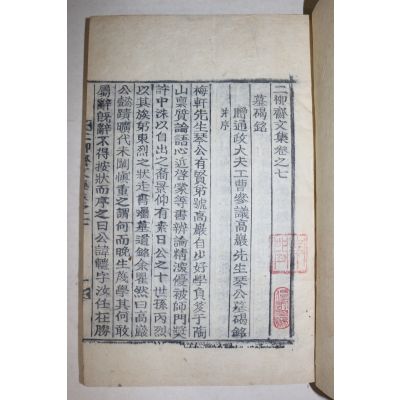 二柳齋文集卷之七
墓碣銘
贈通政大夫工曹參議高巖先生琴公墓碣銘
并序
梅軒先生琴公有賢弟號高巖自少好學負笈于陶
山禀質論語心近啓蒙等書辨論精深優被師門奬
許中洙以自出之裔景仰有素日公之十世孫丙烈
以其族弟東烈之狀走書囑墓道銘余瞿然曰高巖
公懿蹟曠代未闡愼重之謂何而晩生蔑學其何敢
屬辭旣辭不得按狀而序之曰公諱字汝任在勝